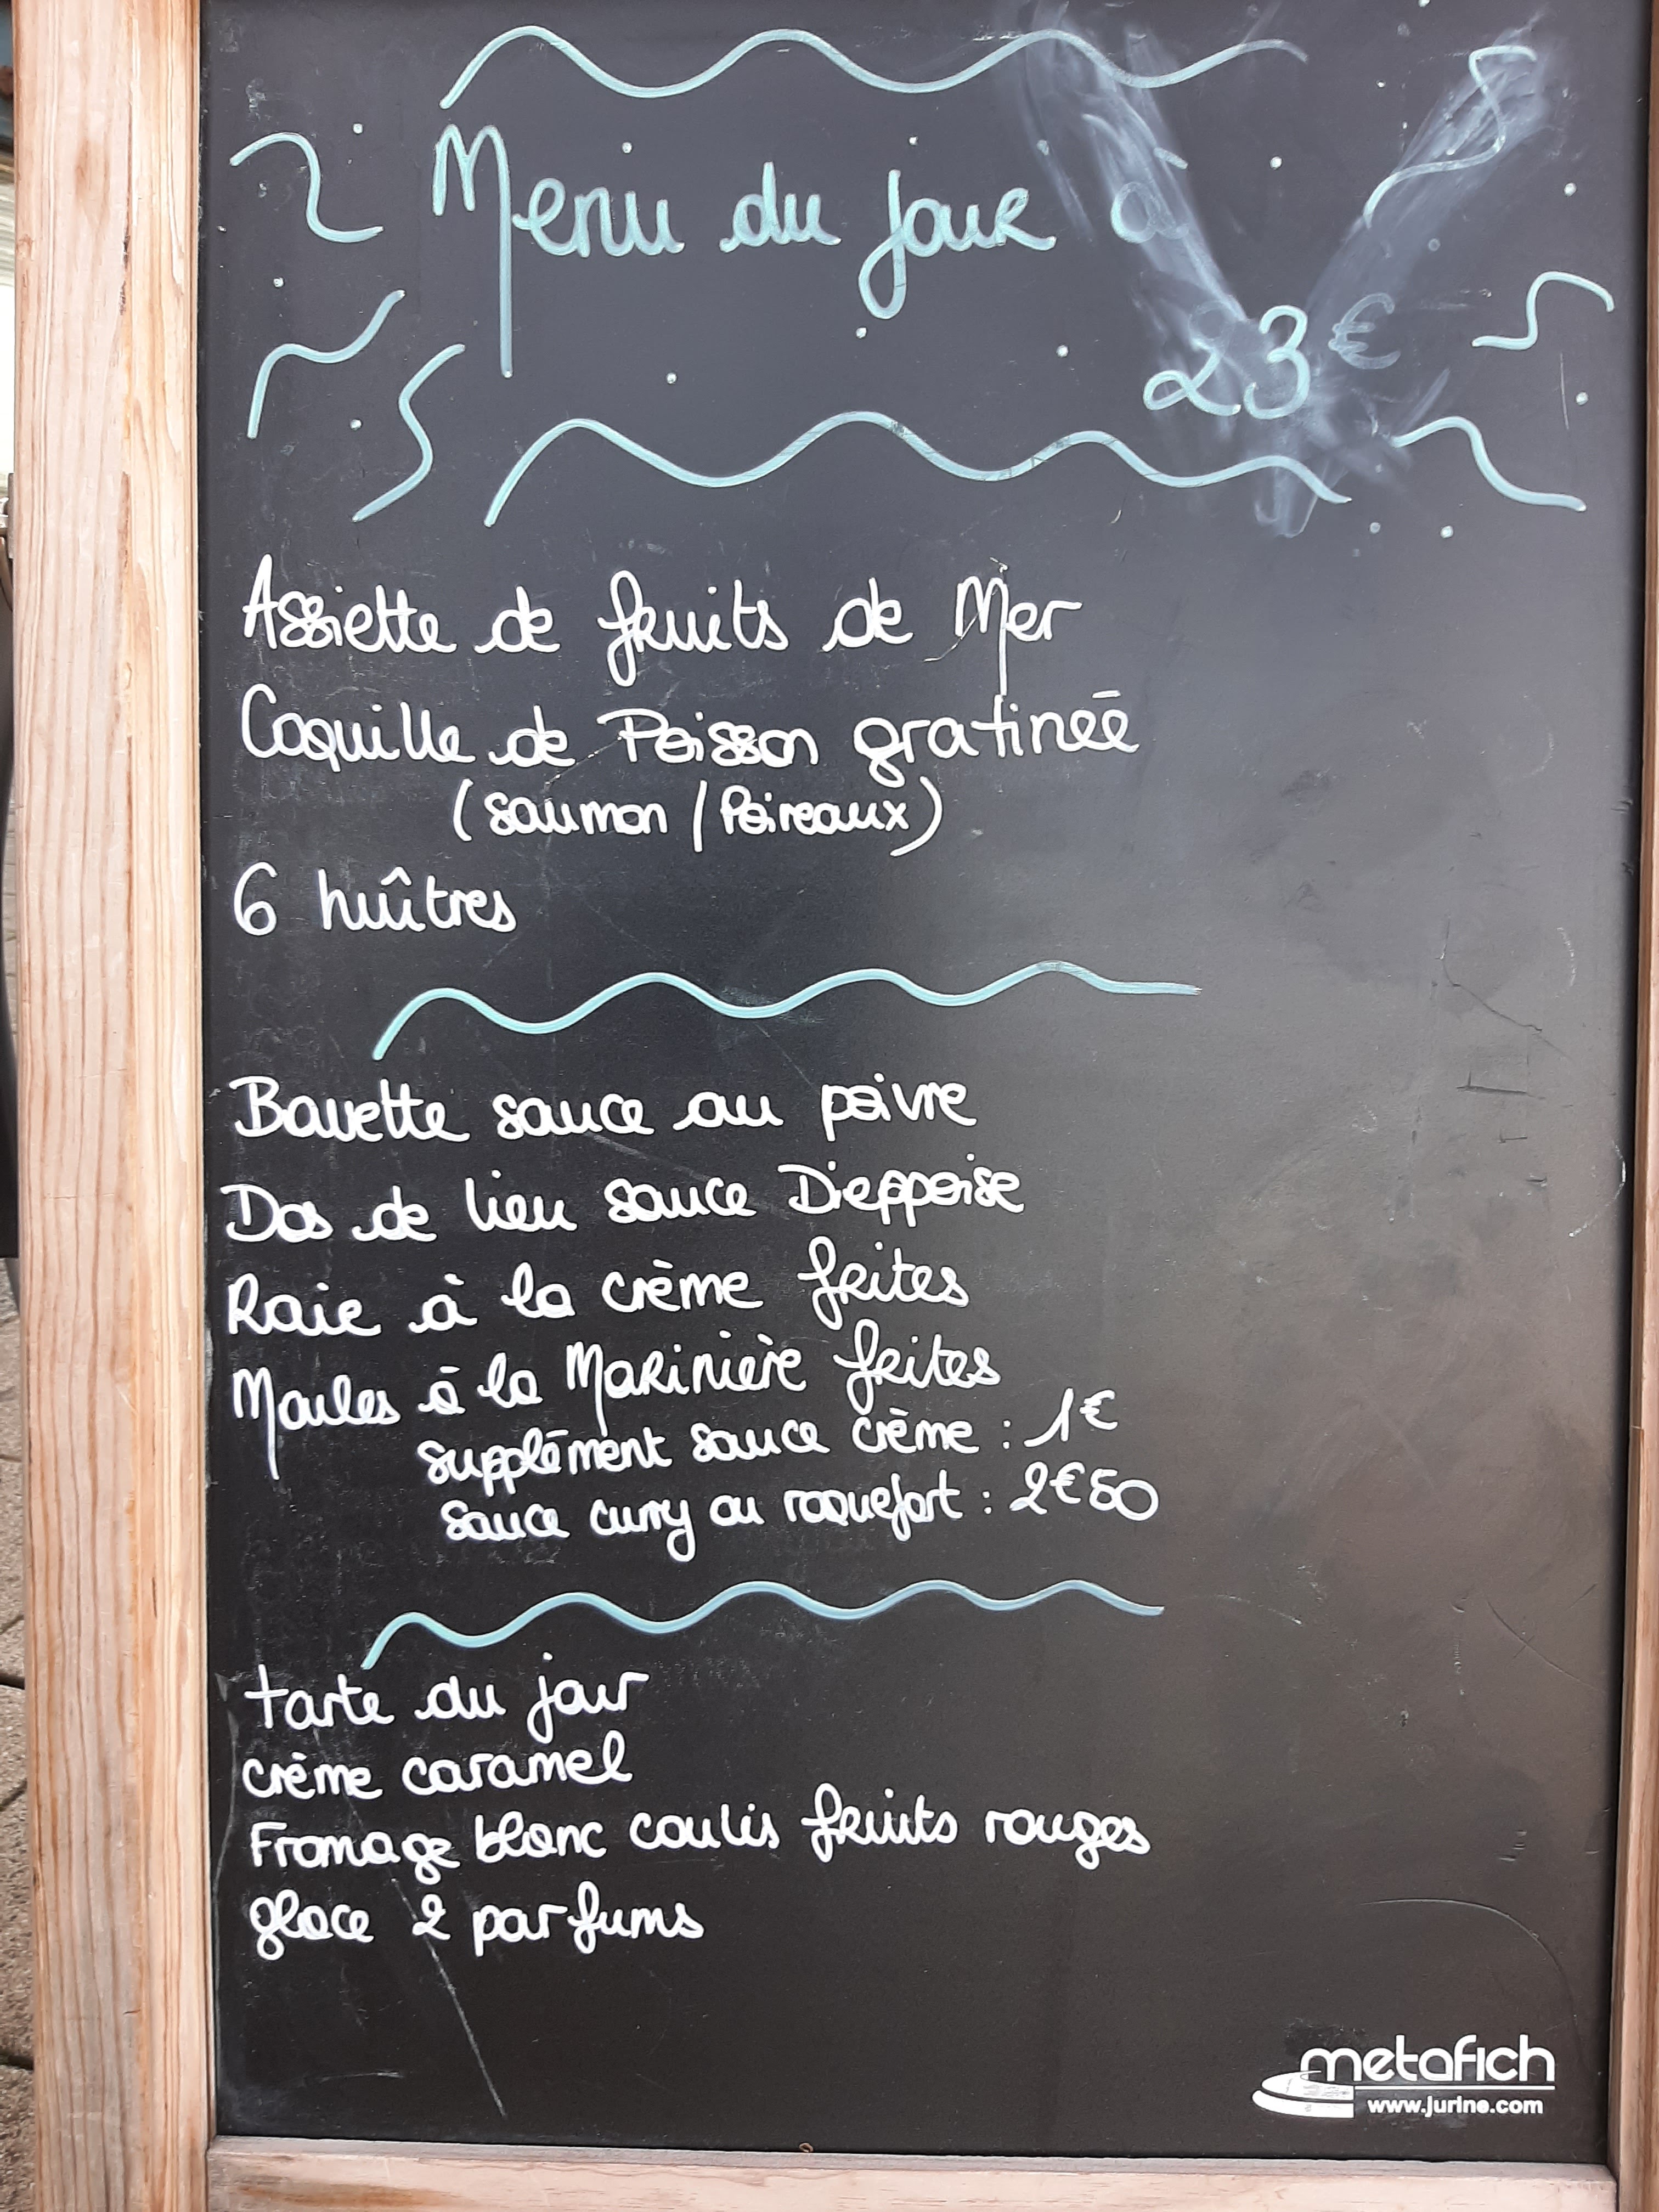 Menu du jour à
23€
Assiette de fruits de Mer
Coquille de Poisson gratinée
(saumon / Poireaux)
6 huîtres
Bavette sauce au poivre
Dos de lieu sauce Dieppoise
Raie à la crème frites
Moules à la Marinière frites
supplément sauce crème : 1€
sauce curry ou roquefort : 2€50
tarte du jour
crème caramel
Fromage blanc coulis fruits rouges
glace 2 parfums
metafich
www.jurine.com